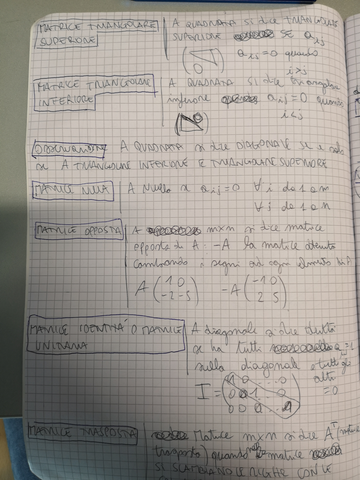 MATRICE TRIANGOLARE SUPERIORE
A QUADRATA SI DICE TRIANGOLARE
SUPERIORE SE aij
aij = 0 quando
0 i>j
MATRICE TRIANGOLARE INFERIORE
A QUADRATA si dice triangolare
inferiore aij = 0 quando
i<j
A QUADRATA si dice DIAGONALE se
A TRIANGOLARE INFERIORE E TRIANGOLARE SUPERIORE
MATRICE NULLA
A Nulla aij = 0 ∀ i da 1 a m
∀ j da 1 a n
MATRICE OPPOSTA
A m×n si dice matrice
opposta di A -A la matrice ottenuta
cambiando i segni ad ogni elemento
A (1 0 -A (-1 0
-2 -5) 2 5)
MATRICE IDENTITÀ O MATRICE UNITARIA
A diagonale si dice
se ha tutti =1
sulla diagonale e tutti gli
altri
=0
I =
MATRICE TRASPOSTA
Matrice m×n si dice Aᵀ (matrice
trasposta) quando matrice
SI SCAMBIANO LE RIGHE CON LE